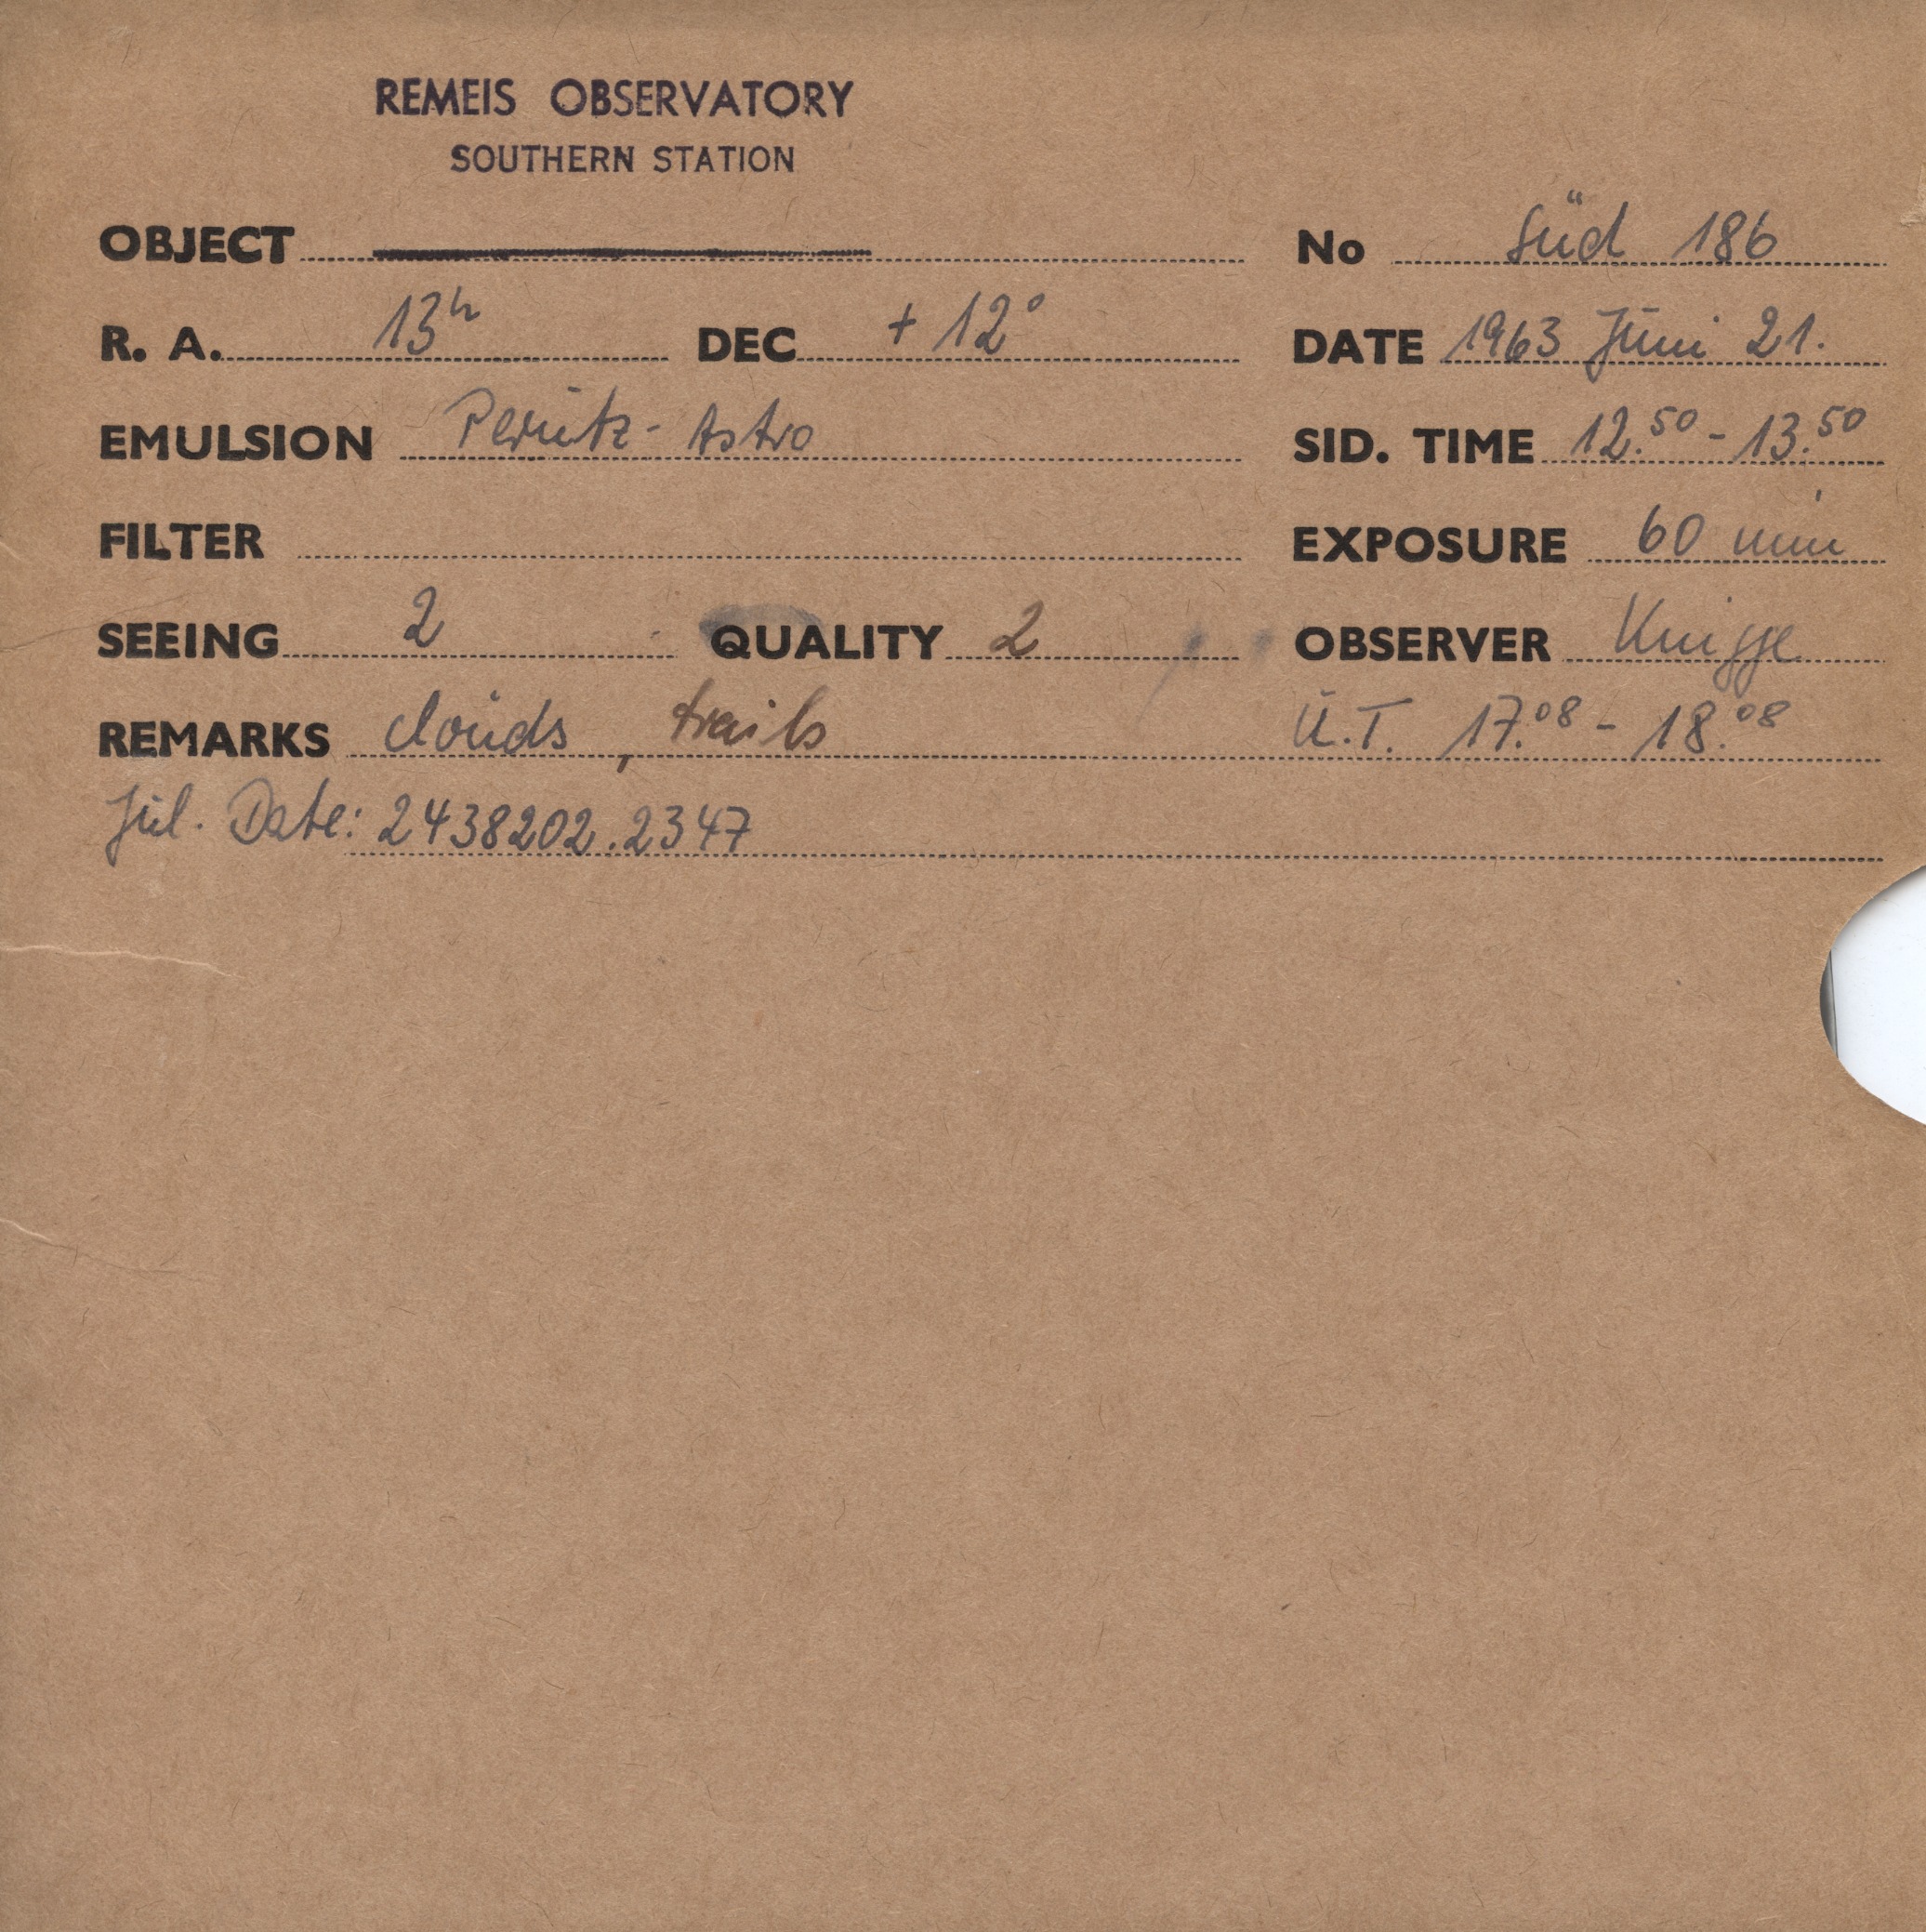 REMEIS OBSERVATORY
SOUTHERN STATION
OBJECT No Süd 186
R. A. 13h DEC + 12° DATE 1963 Juni 21.
EMULSION Perutz- Astro SID. TIME 12.50 - 13.50
FILTER EXPOSURE 60 min
SEEING 2 QUALITY 2 OBSERVER Knigge
REMARKS clouds, trails U.T. 17.08 - 18.08
Jul. Date: 2438202.2347